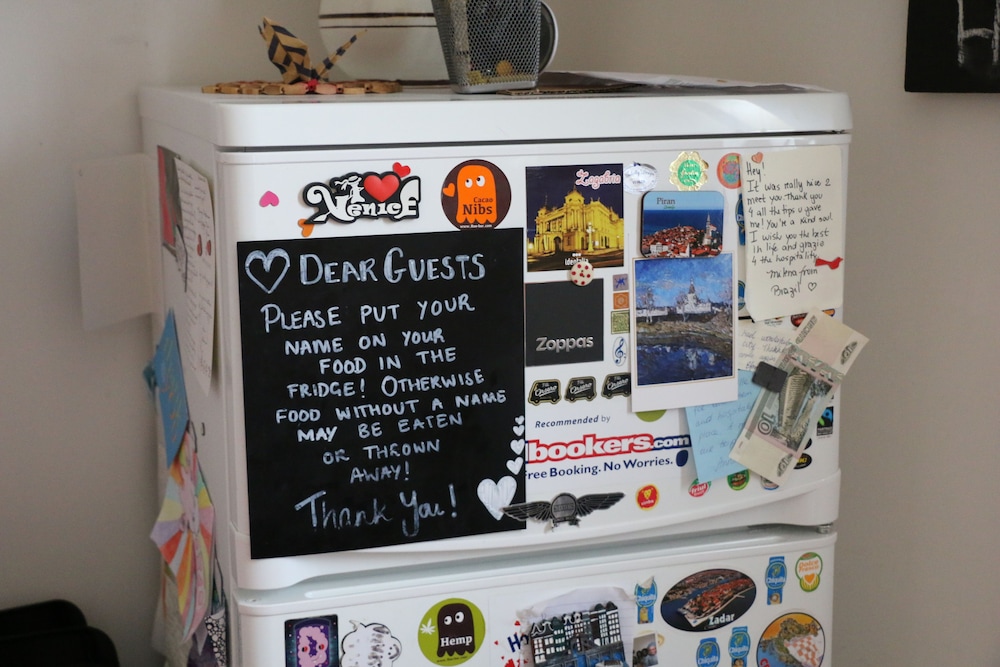 I
VENICE
Cacao
Nibs
Zagabria
Piran
DEAR GUESTS
PLEASE PUT YOUR
NAME ON YOUR
FOOD IN THE
FRIDGE! OTHERWISE
FOOD WITHOUT A NAME
MAY BE EATEN
OR THROWN
AWAY!
Thank You!
Zoppas
Recommended by
bookers.com
Free Booking. No Worries.
Hey!
It was really nice 2
meet you Thank you
4 all the tips u gave
me! You're a kind soul.
I wish you the best
in life and grazie
4 the hospitality
Milena from
Brazil
10
Hemp
Zadar
Chiquita
Chiquita
Chiquita
Chiquita